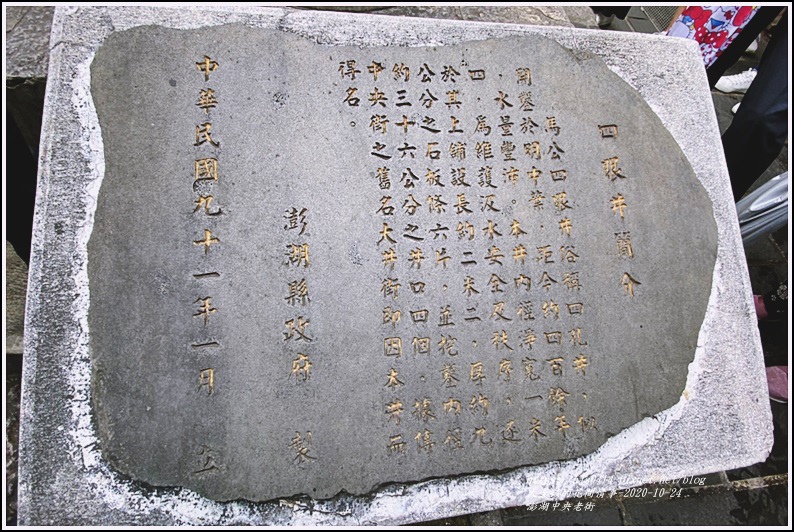 四眼井簡介
馬公四眼井俗稱四孔井，似
開鑿於明中葉，距今約四百餘年
，水量豐沛。本井內徑淨寬一米
四，為維護汲水安全及秩序，還
於其上鋪設長約二米二，厚約九
公分之石板條六片，並挖鑿內徑
約三十六公分之井口四個，據傳
中央街之舊名大井街即因本井而
得名。
澎湖縣政府 製
中華民國九十一年一月 立
2020-10-24
澎湖中央老街